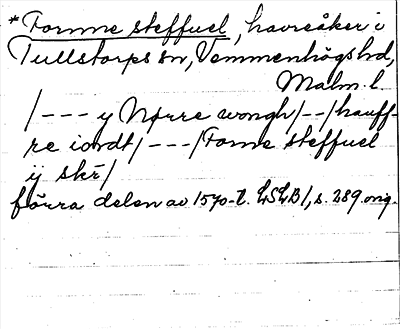 *Tornne steffuel, havreåker i
Tullstorps sn, Vemmenhögs hd,
Malm. l.
/--- y Nørre wongh/--/hauff-
re iordt/---/Torne steffuel
ij skr̄/
förra delen av 1570-t. LSLB1, s. 289 orig.